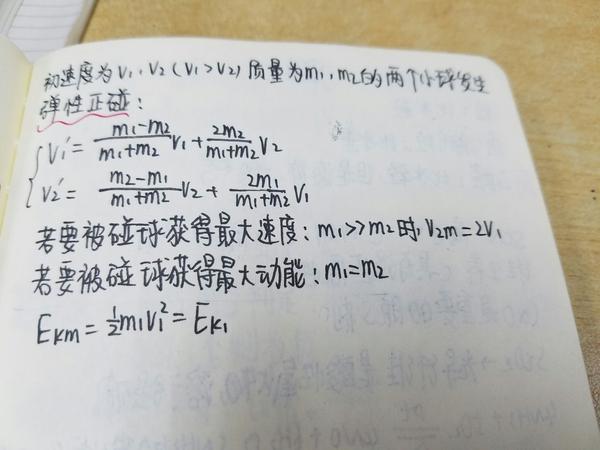 初速度为v₁,v₂(v₁>v₂)质量为m₁,m₂的两个小球发生
弹性正碰:
v₁'=\frac{m₁-m₂}{m₁+m₂}v₁+\frac{2m₂}{m₁+m₂}v₂
v₂'=\frac{m₂-m₁}{m₁+m₂}v₂+\frac{2m₁}{m₁+m₂}v₁
若要被碰球获得最大速度:m₁>>m₂时,v₂m=2v₁
若要被碰球获得最大动能:m₁=m₂
Eₖm=½m₁v₁²=Eₖ₁